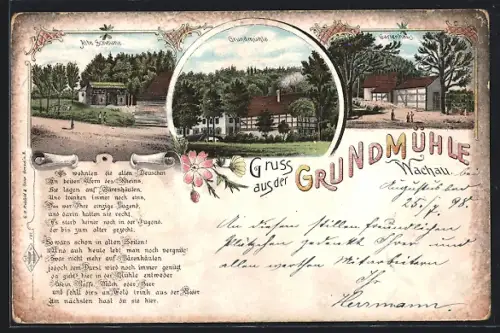 Alte Schmiede
Grundmühle
Gartenhaus
Gruss
aus der
GRUNDMÜHLE
Wachau
Es wohnten die alten Deutschen
An beiden Ufern des Rheins,
Sie lagen auf Bärenhäuten,
Und tranken immer noch eins,
Das war Ihre einzige Tugend,
und darin hatten sie recht,
Es starb keiner noch in der Jugend,
der bis zum alter gezecht.
So wars schon in alten Zeiten!
Und auch heute lebt man noch vergnügt
Zwar nicht mehr auf Bärenhäuten
jedoch dem Durst wird noch immer genügt
da giebt hier in der Mühle entweder
Wein Kaffe, Milch oder Bier
und fehlt dirs an Geld trink aus der
Am nächsten hast du sie hier.
Augustusbad den
25./7. 98.
An diesem stillen freundlichen
Plätzchen gedenkt Ihrer und
allen werthen Mitarbeitern
Ihr
Herrmann